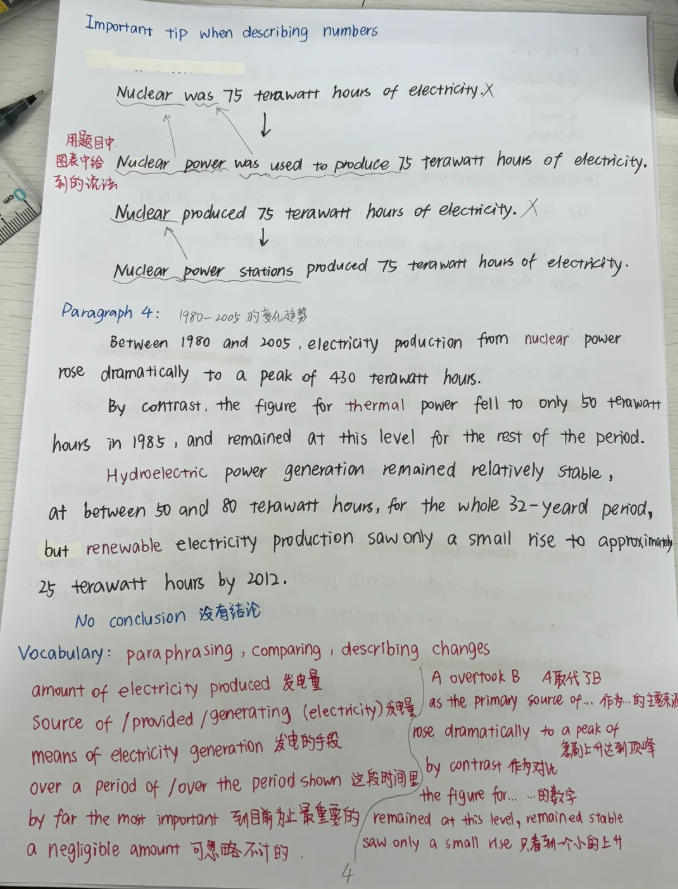 Important tip when describing numbers
Nuclear was 75 terawatt hours of electricity. X
用题目中
图表中给
到的说法
Nuclear power was used to produce 75 terawatt hours of electricity.
Nuclear produced 75 terawatt hours of electricity. X
Nuclear power stations produced 75 terawatt hours of electricity.
Paragraph 4: 1980-2005的变化趋势
Between 1980 and 2005, electricity production from nuclear power
rose dramatically to a peak of 430 terawatt hours.
By contrast, the figure for thermal power fell to only 50 terawatt
hours in 1985, and remained at this level for the rest of the period.
Hydroelectric power generation remained relatively stable,
at between 50 and 80 terawatt hours, for the whole 32-yeard period,
but renewable electricity production saw only a small rise to approximately
25 terawatt hours by 2012.
No conclusion 没有结论
Vocabulary: paraphrasing, comparing, describing changes
amount of electricity produced 发电量
source of /provided /generating (electricity) 发电量
means of electricity generation 发电的手段
over a period of /over the period shown 这段时间里
by far the most important 到目前为止最重要的
a negligible amount 可忽略不计的
A overtook B A取代了B
as the primary source of... 作为...的主要来源
rose dramatically to a peak of
急剧上升达到顶峰
by contrast 作为对比
the figure for... ...的数字
remained at this level, remained stable
saw only a small rise 只看到一个小的上升
4
cm
0